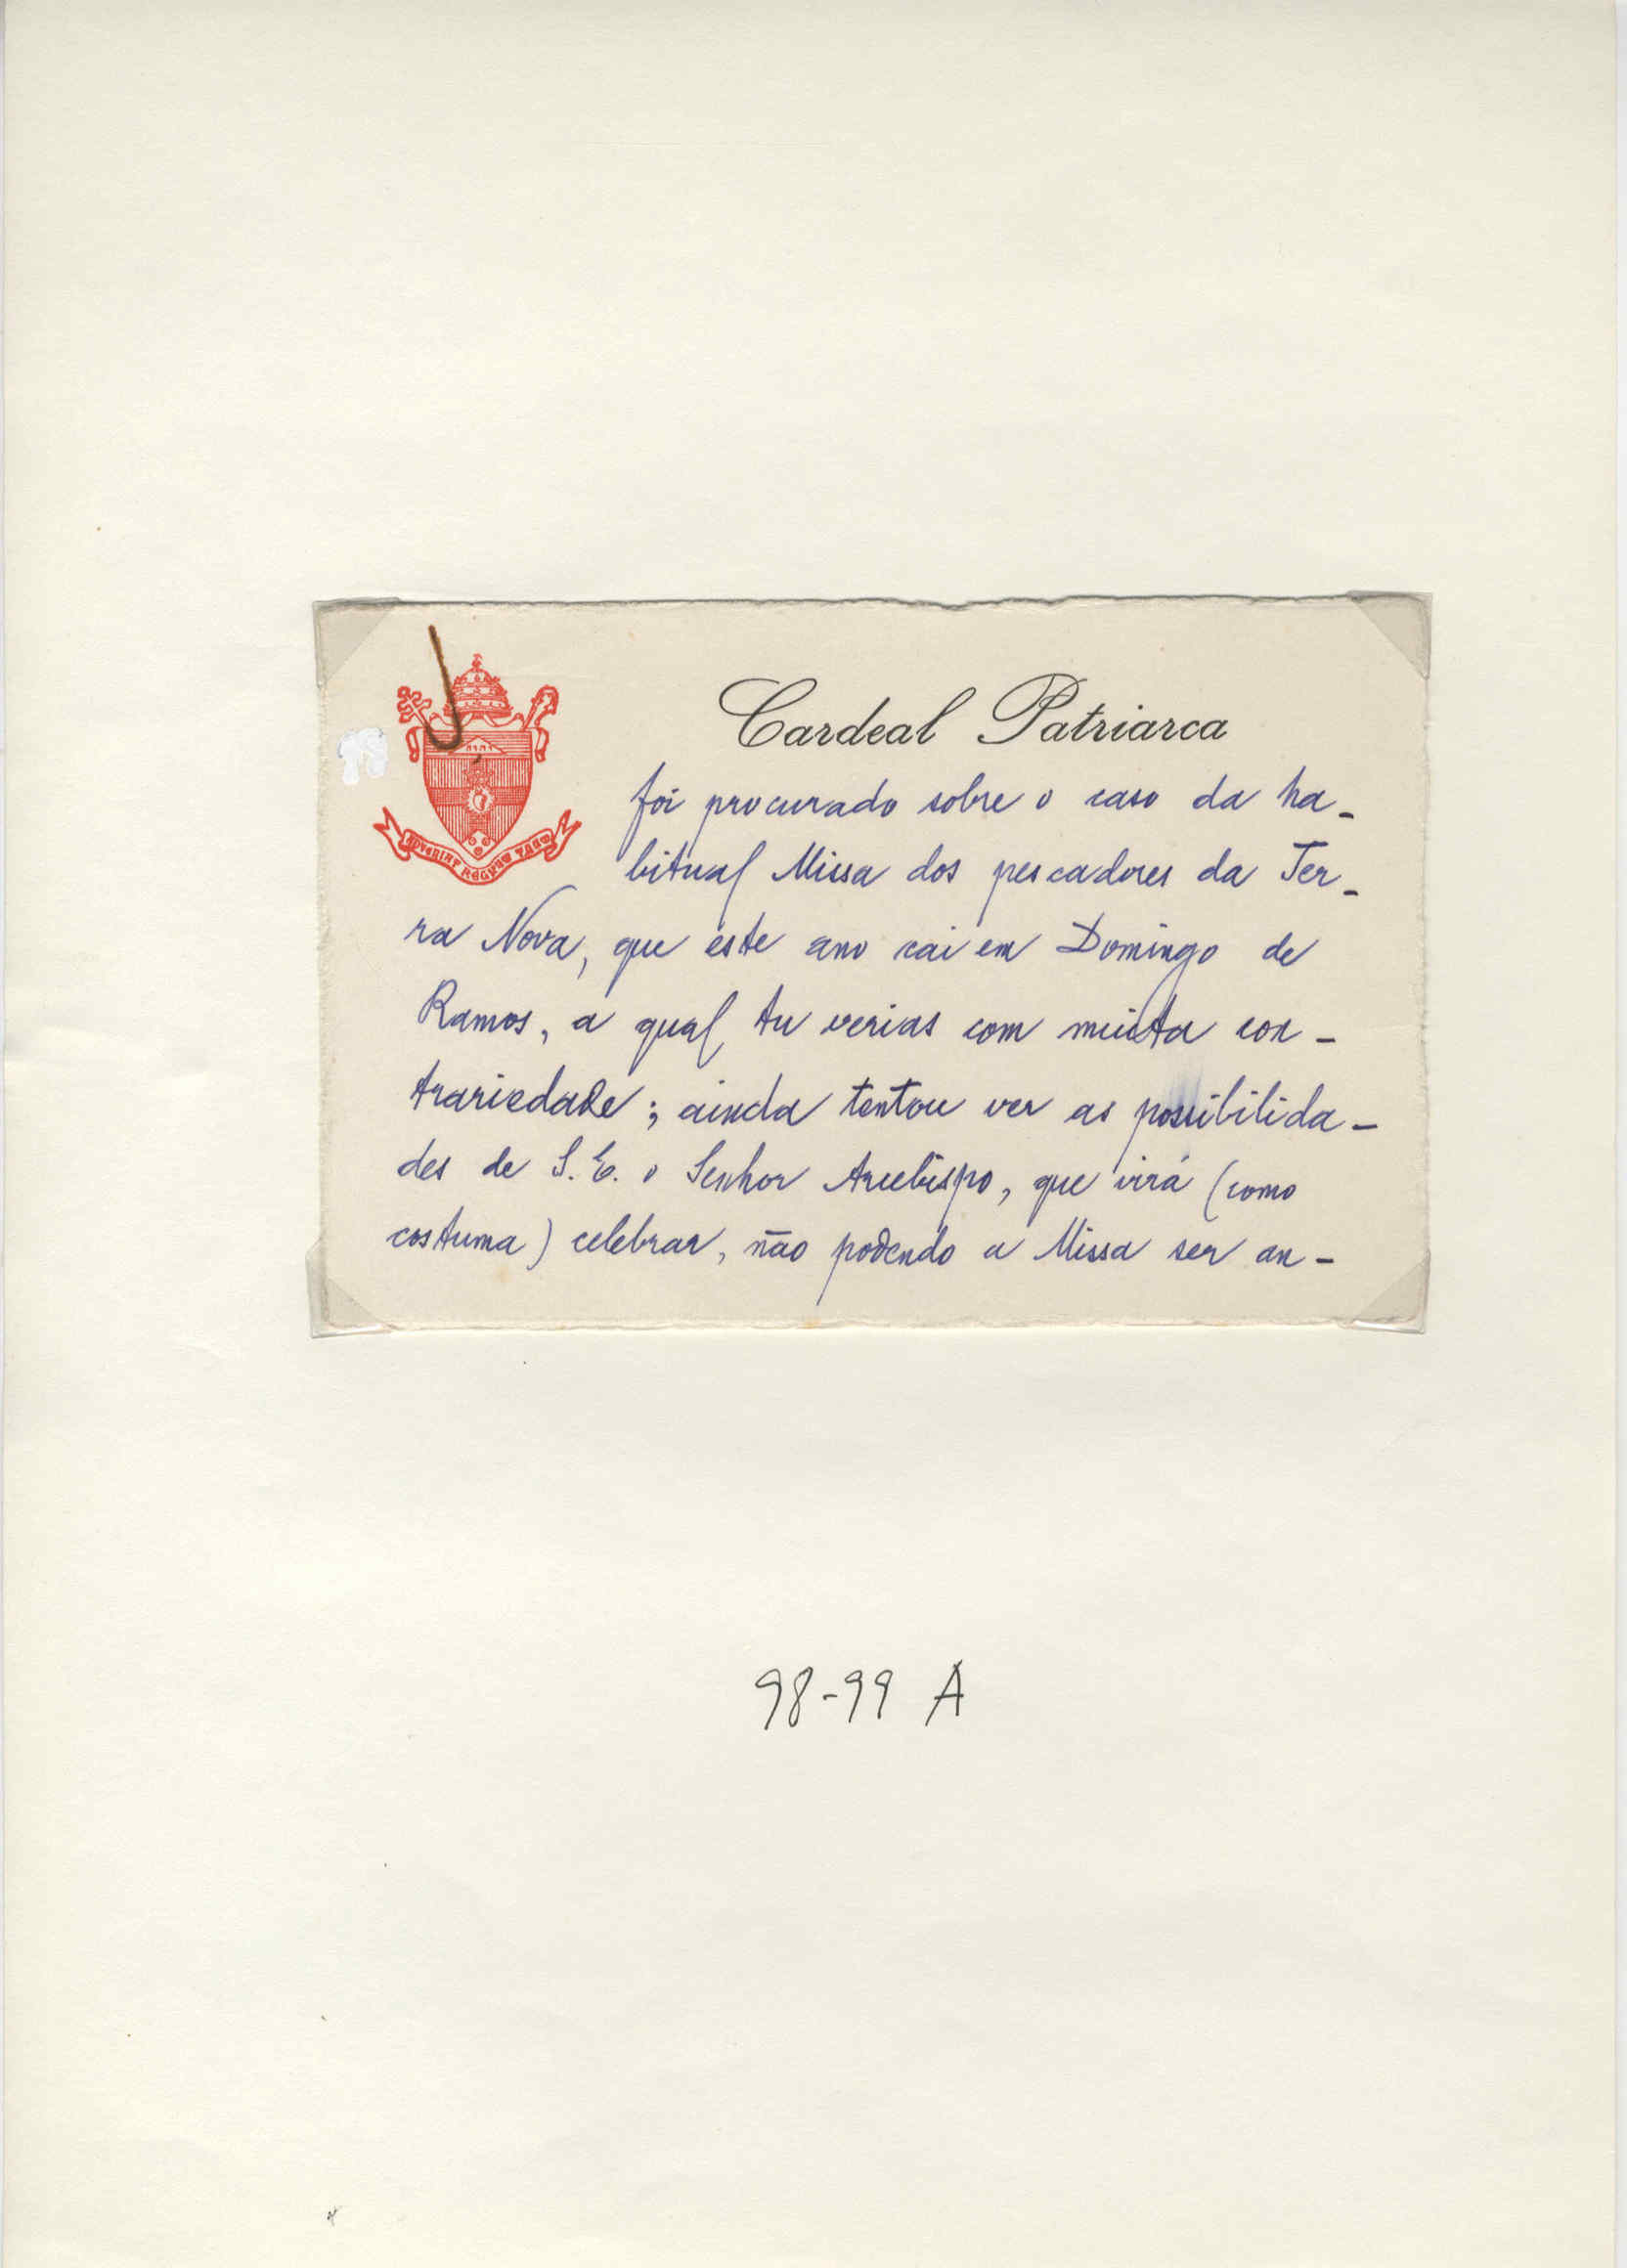 Cardeal Patriarca
ADVENIAT REGNUM TUUM
foi procurado sobre o caso da ha-
bitual Missa dos pescadores da Ter-
ra Nova, que este ano cai em Domingo de
Ramos, a qual tu verias com muita con-
trariedade; ainda tentou ver as possibilida-
des de S. E. o Senhor Arcebispo, que virá (como
costuma) celebrar, não podendo a Missa ser an-
98-99 A